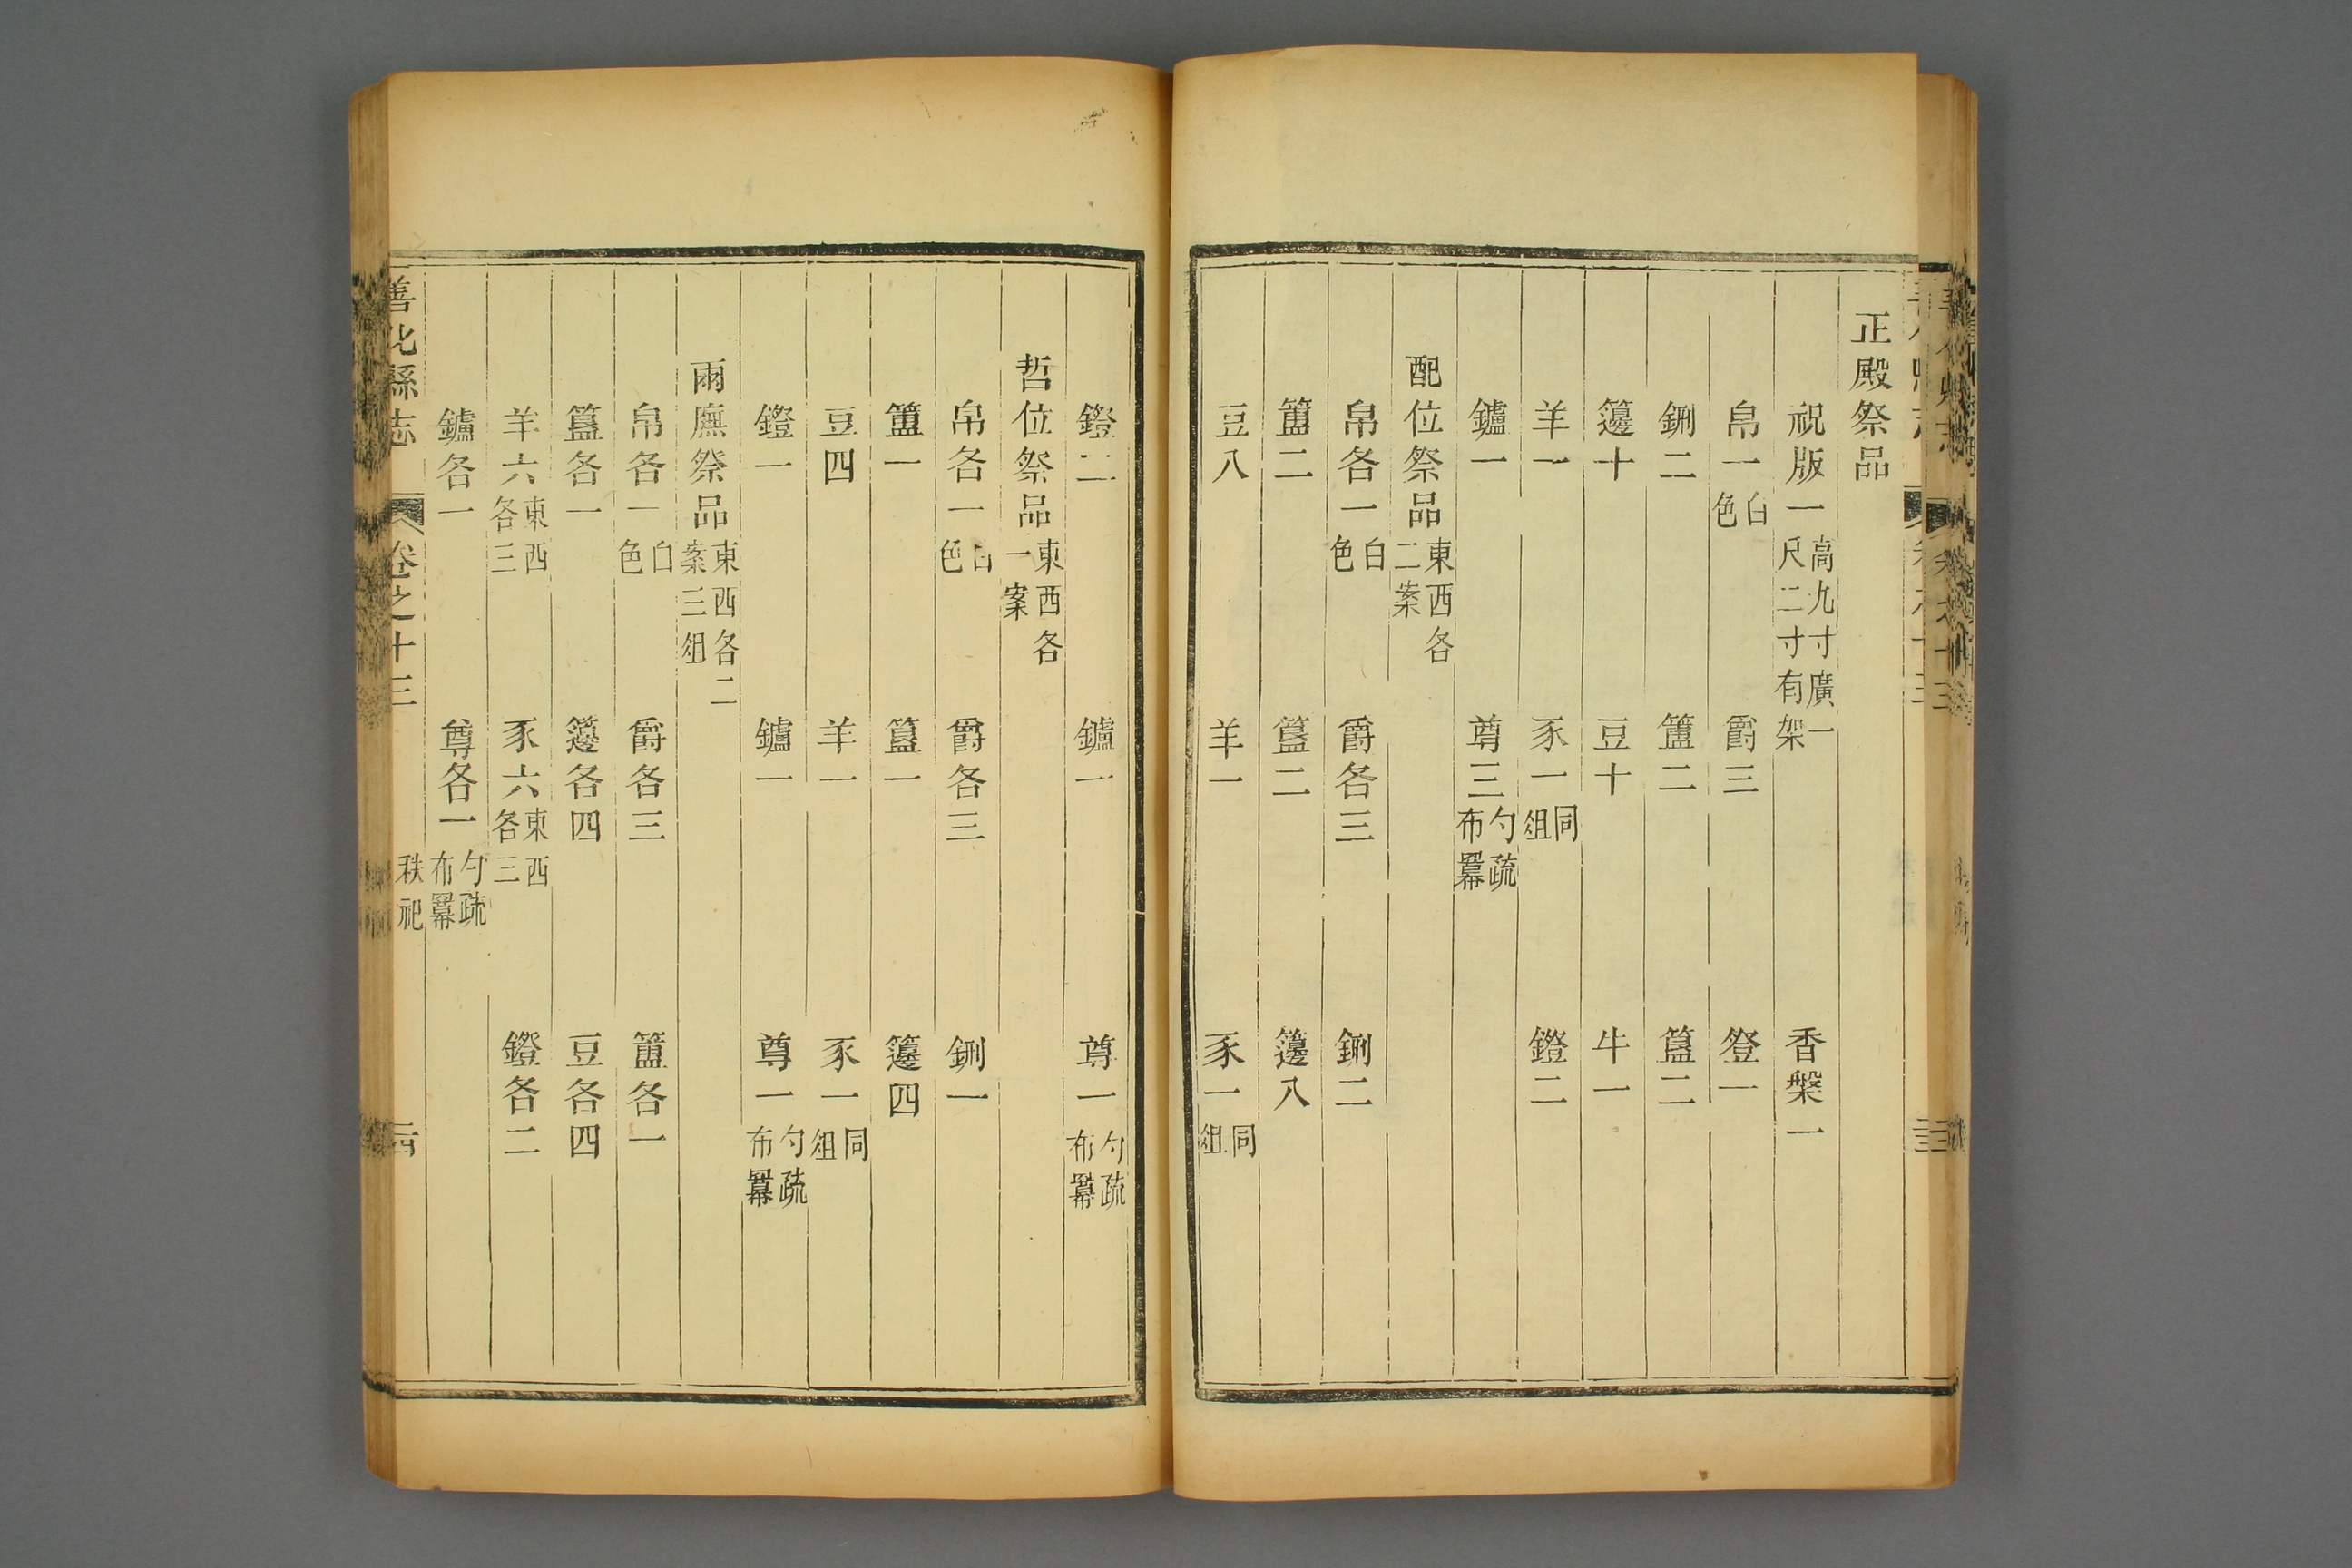 正殿祭品
祝版一高九寸廣一尺二寸有架 香槃一
帛一白色 爵三 登一
鉶二 簠二 簋二
籩十 豆十 牛一
羊一 豕一同俎 鐙二
鑪一 尊三勺疏布羃
配位祭品東西各二案
帛各一白色 爵各三 鉶二
簠二 簋二 籩八
豆八 羊一 豕一同俎
鐙二 鑪一 尊一勺疏布羃
哲位祭品東西各一案
帛各一白色 爵各三 鉶一
簠一 簋一 籩四
豆四 羊一 豕一同俎
鐙一 鑪一 尊一勺疏布羃
兩廡祭品東西各二案三俎
帛各一白色 爵各三 簠各一
簋各一 籩各四 豆各四
羊六東西各三 豕六東西各三 鐙各二
鑪各一 尊各一勺疏布羃
善化縣志 卷之十三 秩祀